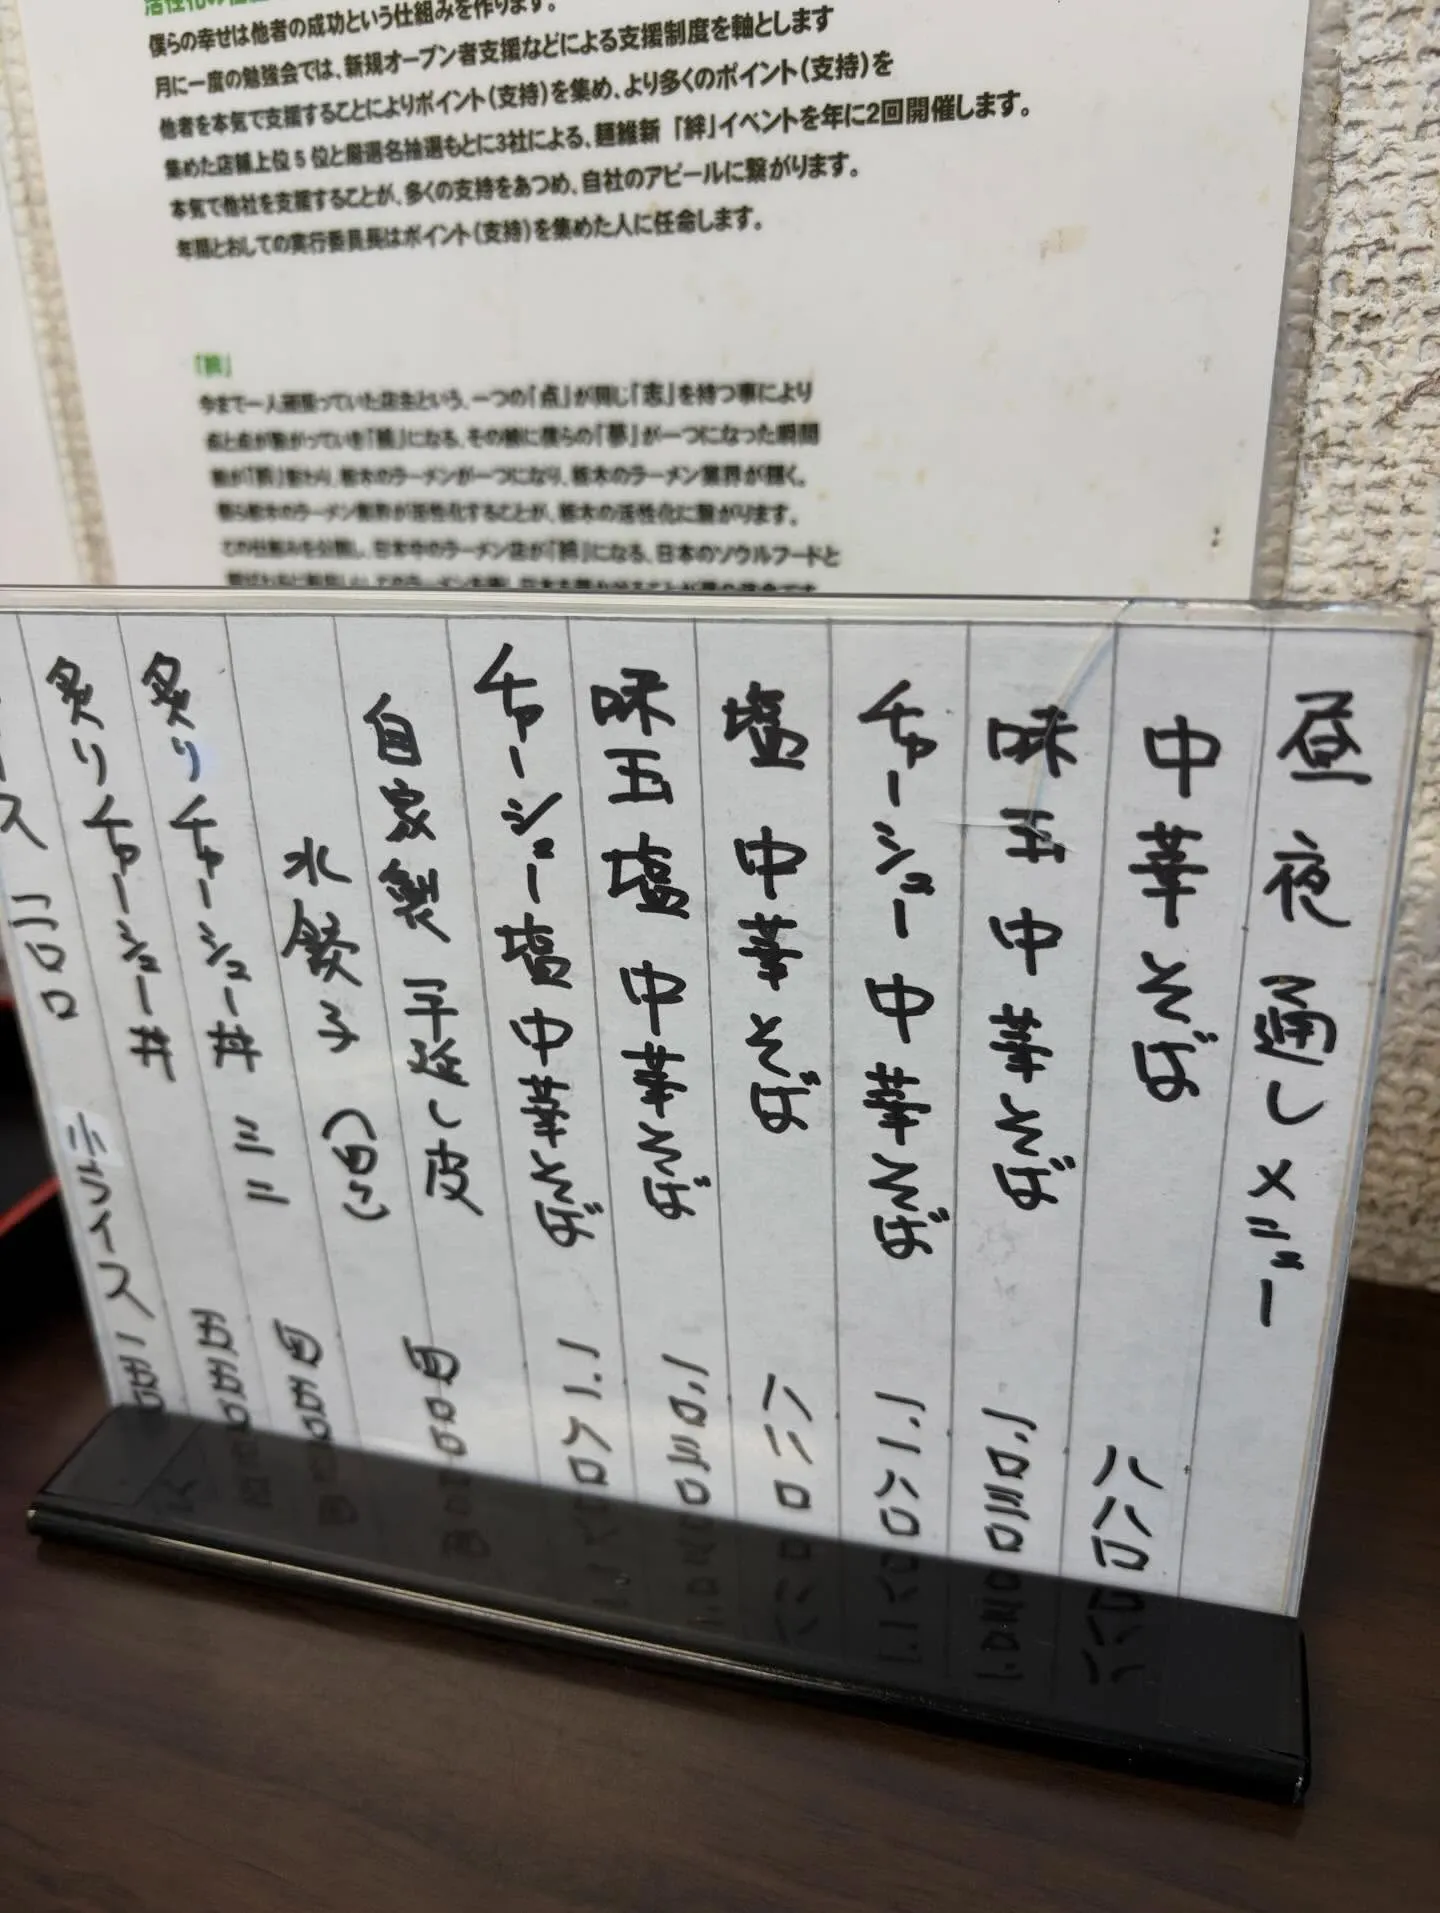 僕らの幸せは他者の成功という仕組みを作ります。
月に一度の勉強会では、新規オープン者支援などによる支援制度を軸とします
他者を本気で支援することによりポイント(支持)を集め、より多くのポイント(支持)を
集めた店舗上位5位と厳選名抽選もとに3社による、麺維新「絆」イベントを年に2回開催します。
本気で他社を支援することが、多くの支持をあつめ、自社のアピールに繋がります。
年間とおしての実行委員長はポイント(支持)を集めた人に任命します。
「絆」
今まで一人頑張っていた店主という、一つの「点」が同じ「志」を持つ事により
点と点が繋がっていき「線」になる、その線に僕らの「夢」が一つになった瞬間
線が「絆」に変わり、栃木のラーメンが一つになり、栃木のラーメン業界が輝く。
栃木のラーメン業界が活性化することが、栃木の活性化に繋がります。
この仕組みを公開し、日本中のラーメン店が「絆」になる、日本のソウルフードと
昼夜通しメニュー
中華そば 八八〇
味玉中華そば 一、〇三〇
チャーシュー中華そば 一、一八〇
塩中華そば 八八〇
味玉塩中華そば 一、〇三〇
チャーシュー塩中華そば 一、一八〇
自家製手延し皮
水餃子(四こ) 四〇〇
炙りチャーシュー丼ミニ 四五〇
炙りチャーシュー丼 五五〇
イス 二〇〇 小ライス 一五〇